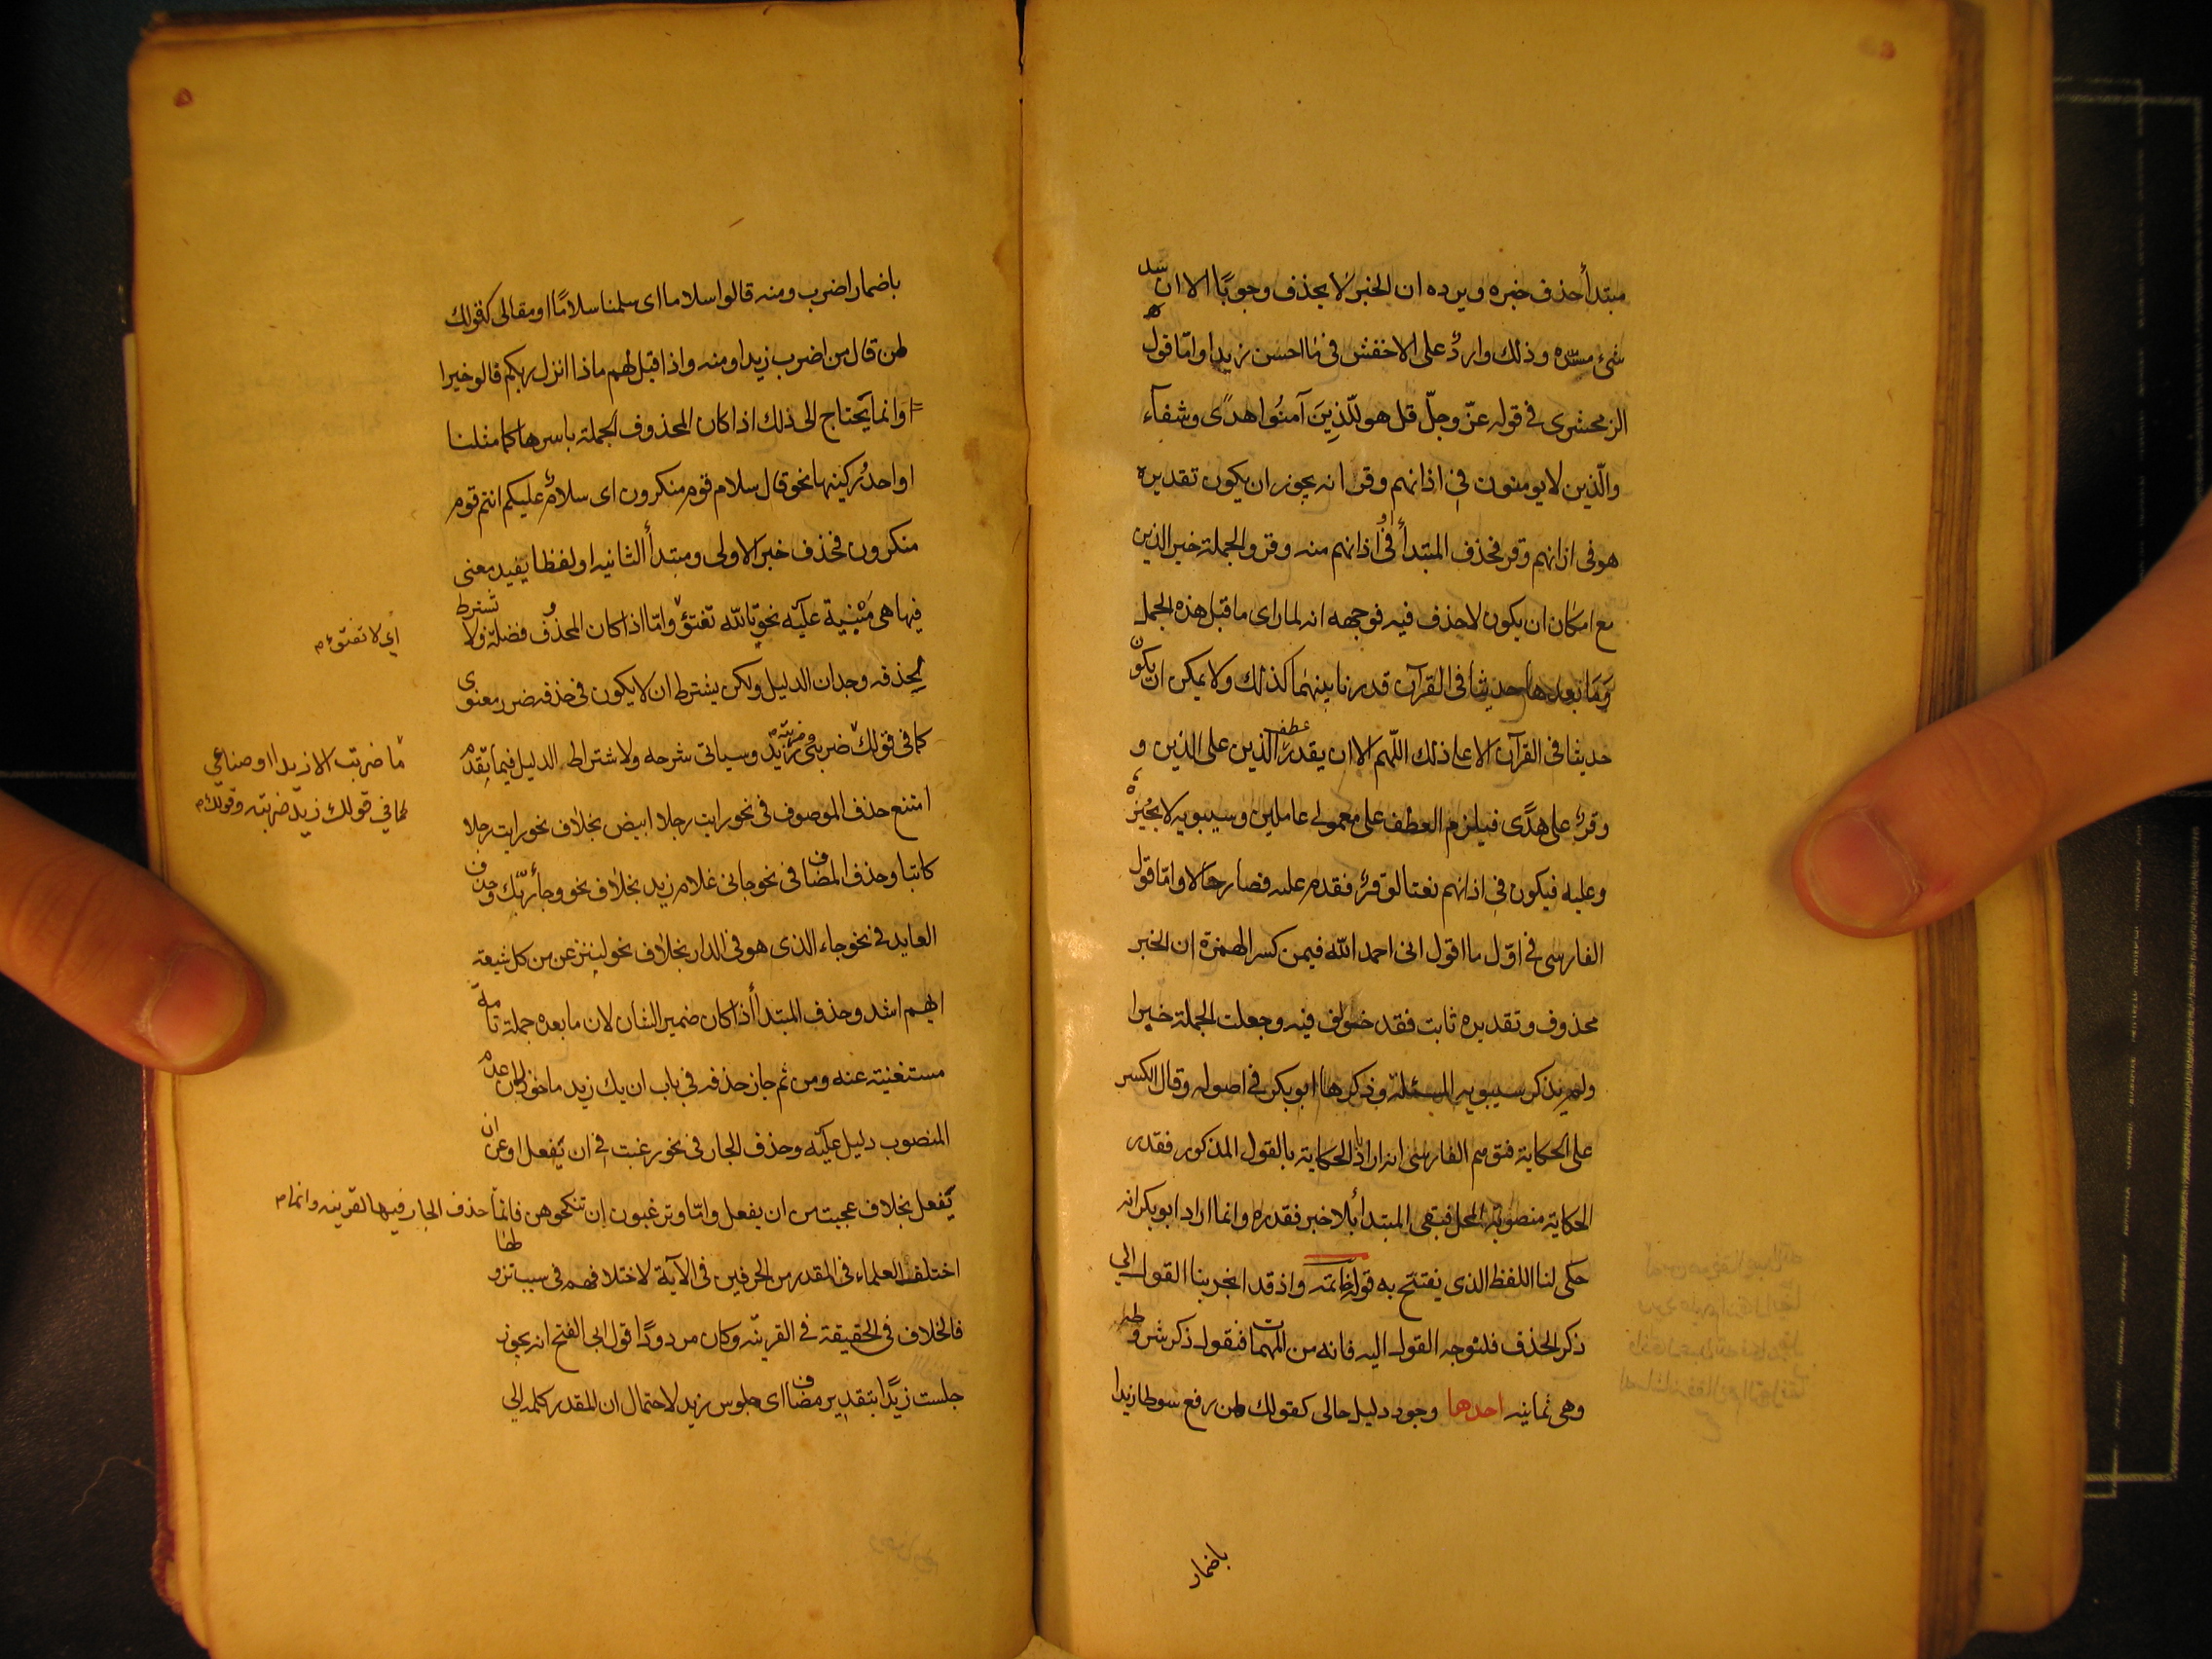 مبتدأ حذف خبره ويرده ان الخبر لا يحذف وجوبًا الا ان سد
شئ مسدّه وذلك واردٌ على الاخفش فى ما احسن زيدا وامّا قول
الزمخشرى فى قوله عزّ وجلّ قل هو للّذِينَ آمنُوا هدًى وشفآء
والّذين لا يومنون فى اذانهم وقر انه يجوز ان يكون تقديره
هو فى اذانهم وقر فحذف المبتدأ او فى اذانهم منه وقر والجملة خبر الذين
مع امكان ان يكون لا حذف فيه فوجهه انه لما راى ما قبل هذه الجمل
وَمَا بعدها حديثا فى القرآن قدر ما بينهما كذلك ولا يمكن ان يكون
حديثا فى القرآن الا على ذلك اللّهم الا ان يقدر عطف الذين على الذين و
وقرٌ على هدًى فيلزم العطف على معمولى عاملين وسيبويه لا يجُيزه
وعليه فيكون فى اذانهم نعتا لوقرٌ فقدم عليه فصار حالا وامّا قول
الفارسى فى اوّل ما اقول انى احمد الله فيمن كسر الهمزة ان الخبر
محذوف وتقديره ثابت فقد خولف فيه وجعلت الجملة خبرا
ولم يذكر سيبويه المسئلة وذكرها ابو بكر فى اصوله وقال الكسر
على الحكاية فتوهم الفارسى انه اراد الحكاية بالقول المذكور فقدر
الحكاية منصوبة المحل فبقى المبتدأ بلا خبر فقدره وانما اراد ابو بكر انه
حكى لنا اللفظ الذى يفتتح به قوله خاتمه واذ قد انجر بنا القول الى
ذكر الحذف فلنوجه القول اليه فانه من المهمات فنقول ذكر شروطه
وهى ثمانيه احدها وجود دليل حالى كقولك لمن رفع سوطا زيدا
باضمار
باضمار اضرب ومنه قالوا سلاما اى سلمنا سلامًا او مقالى كقولك
لمن قال من اضرب زيدا ومنه واذا قيل لهم ماذا انزل ربكم قالو خيرا
وانما يَحتاج الى ذلك اذا كان المحذوف الجملة باسرها كما مثلنا
او احد رُكنيها نحو قال سلام قوم منكرون اى سلامٌ عليكم انتم قوم
منكرون فحذف خبر الاولى ومبتدأ الثانيه او لفظا يفيد معنى
فيها هى مَبْنِيَة عليه نحو تالله تفتؤ وامّا اذا كان المحذوف فضلة فلا تشترط
لحذفه وجدان الدليل ولكن يشترط ان لا يكون فى حذفه ضرر معنوى
كما فى قولك ضربنى وضربته زيدٌ وسياتى شرحه ولاشتراط الدليل فيما تقدم
امتنع حذف الموصوف فى نحو رايت رجلا ابيض بخلاف نحو رايت رجلا
كاتبا وحذف المضاف فى نحو جانى غلام زيد بخلاف نحو وجاء ربّك وحذف
العايد فى نحو جاء الذى هو فى الدار بخلاف نحو لننزعن من كل شيعة
ايهم اشد وحذف المبتدأ اذا كان ضمير الشان لان ما بعده جملة تامة
مستغنية عنه ومن ثم جاز حذفه فى باب ان بك زيد ماخوذ لان عدم
المنصوب دليل عليه وحذف الجار فى نحو رغبت فى ان يَفعل او عن ان
يَفعل بخلاف عجبت من ان يفعل وامّا وترغبون ان تنكحوهن فانمّا حذف الجار فيها لقرينه وانما م
اختلف العلماء فى المقدر من الحرفين فى الآية لاختلافهم فى سبب نزولها
فالخلاف فى الحقيقة فى القرينه وكان مردودًا قول ابى الفتح انه يجوز
جلست زيدًا بتقدير مضاف اى جلوس زيد لاحتمال ان المقدر كلمه الى
اى لا تفتؤ م
ما ضربت الا زيدا او صناعى
كما فى قولك زيد ضربته وقولك م